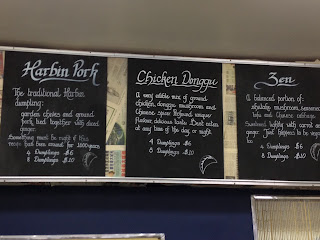 Harbin Pork
The traditional Harbin
dumpling:
garden chives and ground
pork, tied together with diced
ginger.
Something must be right if this
has been around for 1000 years
4 Dumplings $6
8 Dumplings $10
Chicken Donggu
A very edible mix of ground
chicken, donggu mushroom and
Chinese spice. Refined unique
flavour, delicious taste. Best eaten
at any time of the day or night.
4 Dumplings $6
8 Dumplings $10
Zen
A balanced portion of:
shiitake mushroom, seasoned
tofu and Chinese cabbage.
Sweetened lightly with carrot and
ginger. Just happens to be vegan
too.
4 Dumplings $6
8 Dumplings $10